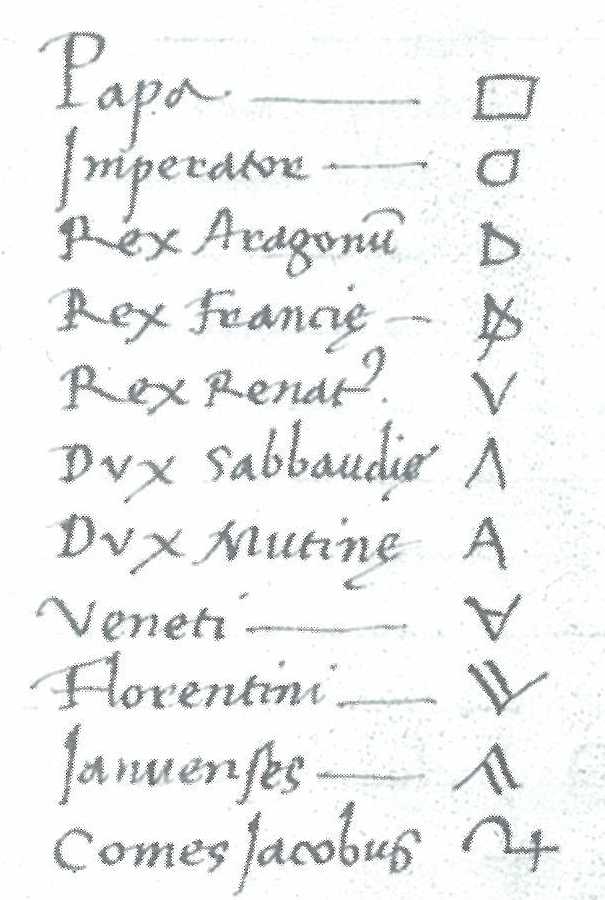 Papa ——— □
Imperator ——
Rex Aragonū D
Rex Francię —
Rex Renat⁹. V
Dvx Sabbaudię Λ
Dvx Mutinę A
Veneti ——— ∀
Florentini ——
Ianuenſes ——
Comes Jacobus ♃